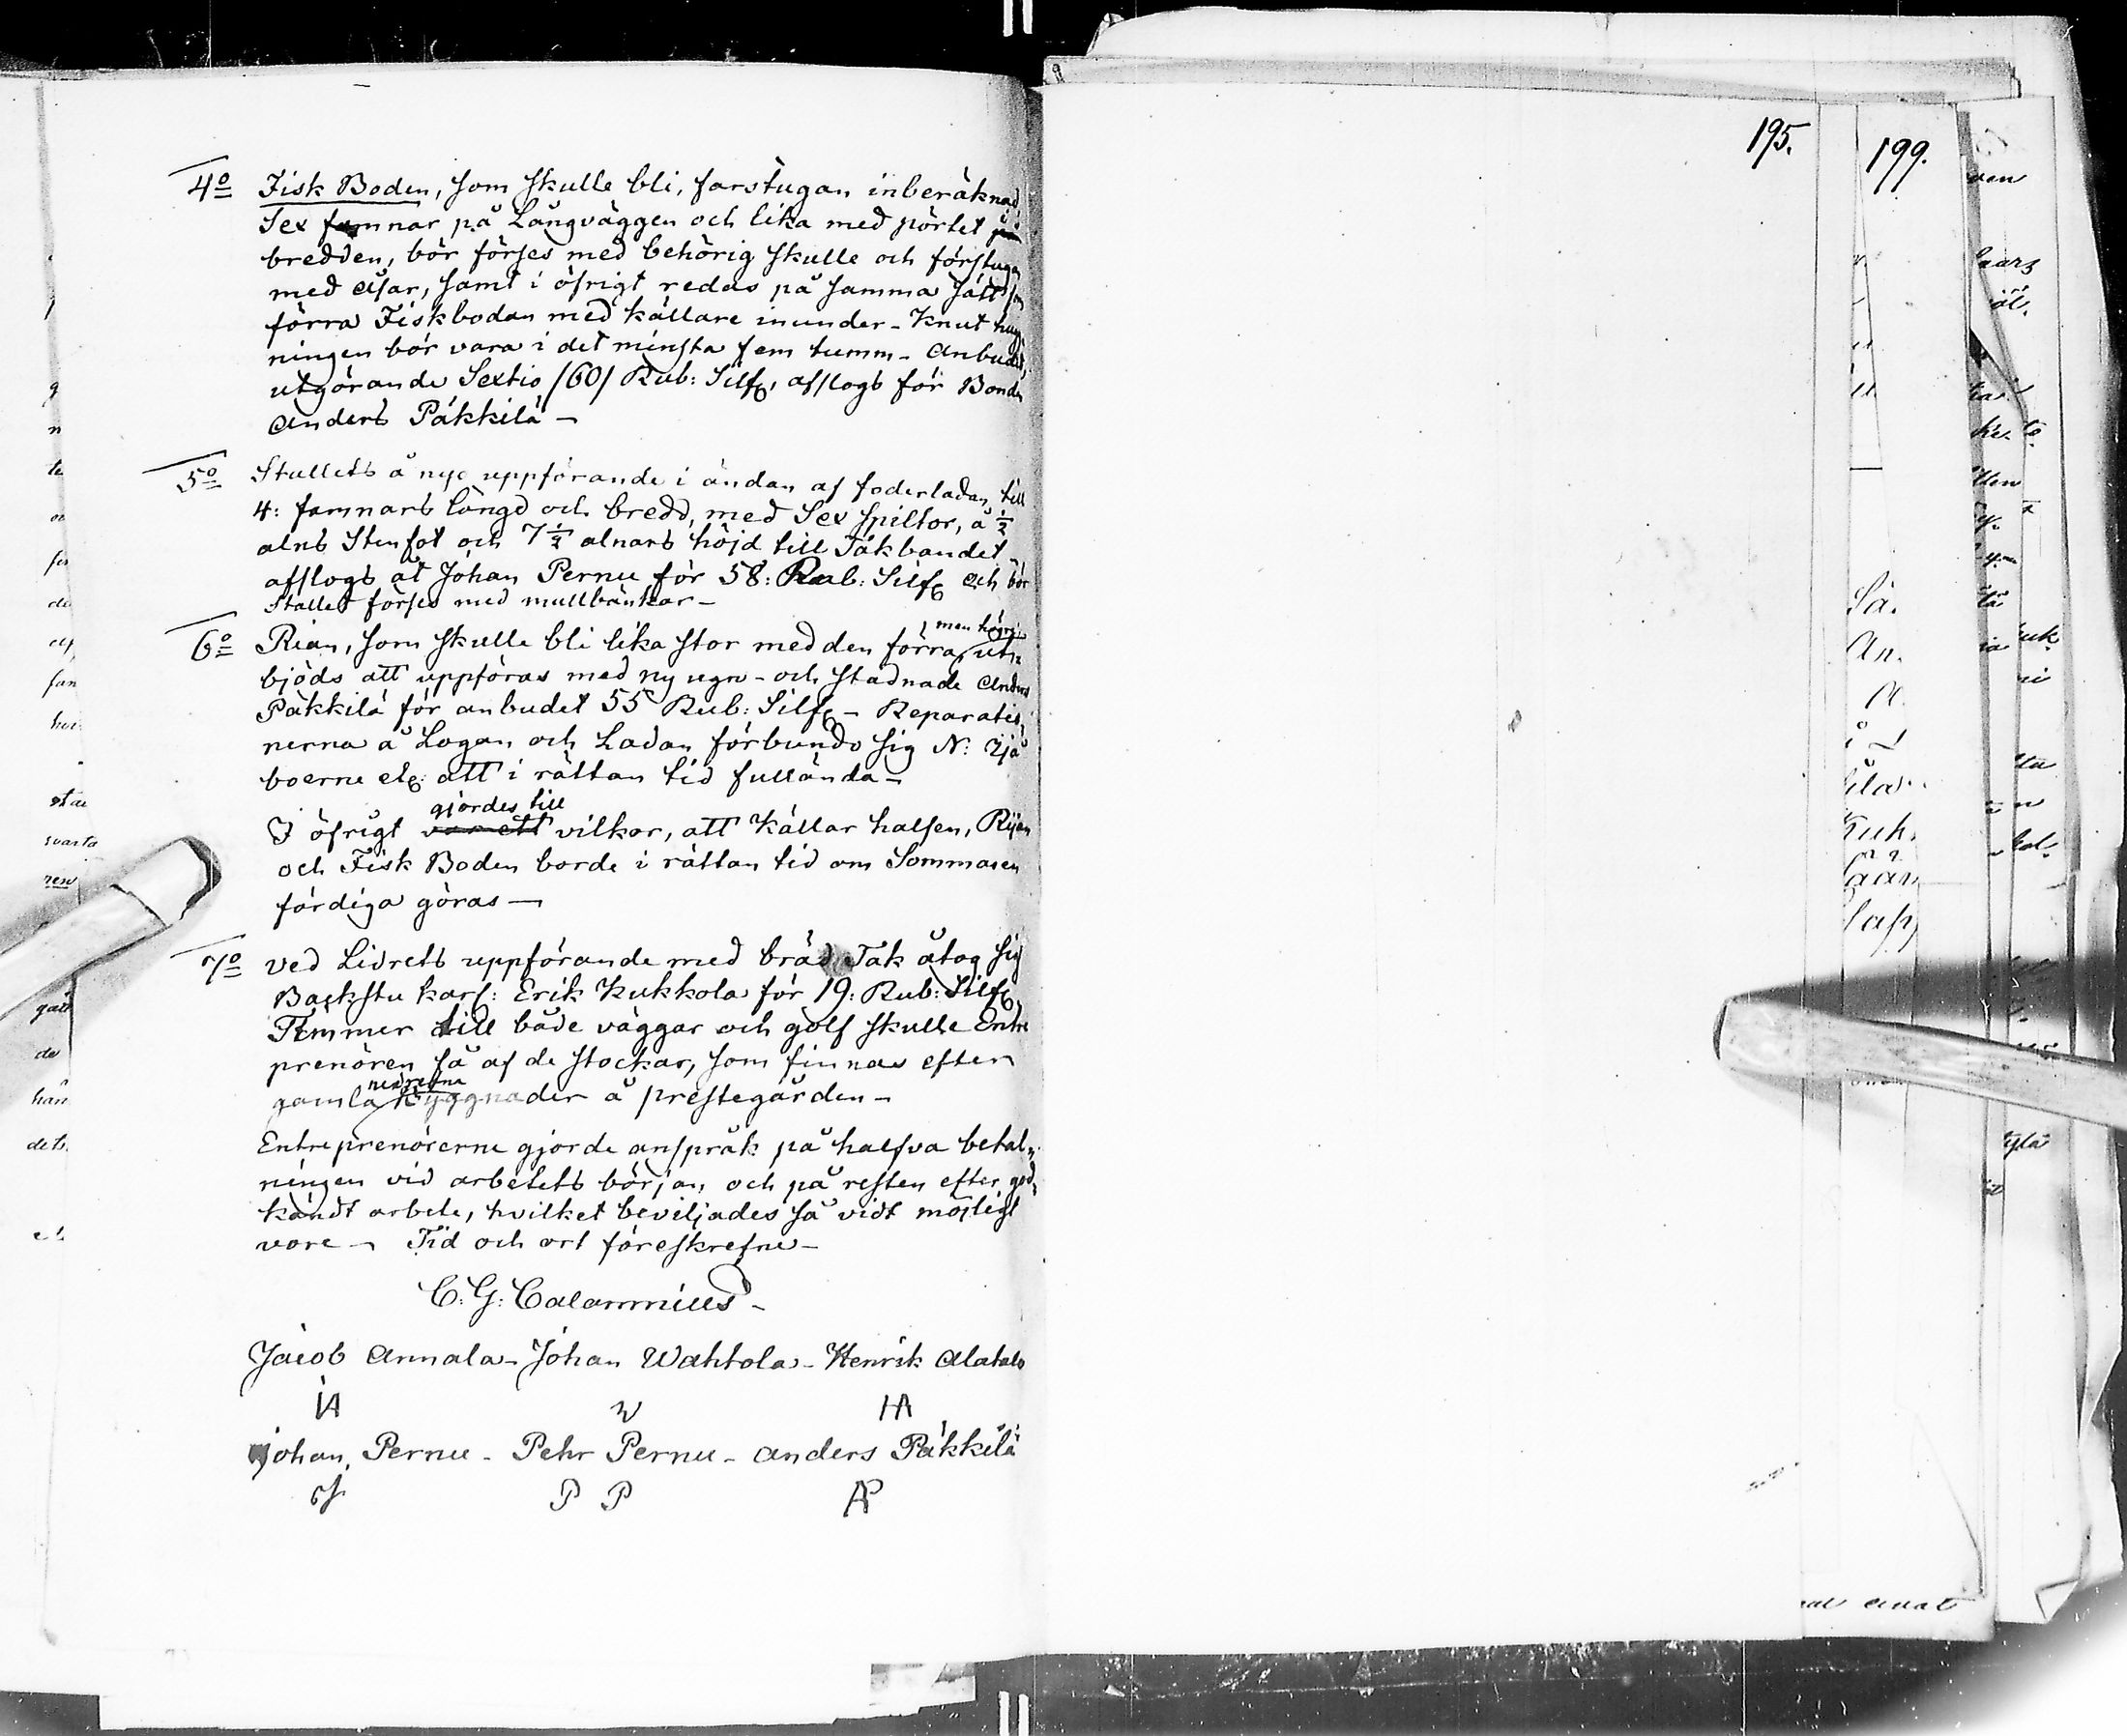 195.
199.
4o Fisk Boden, som skulle bli, farstugan inberäknad,
Sex famnar på Långväggen och lika med pörtet på
bredden, bör förses med behörig skulle och förstugan
med åsar, samt i öfrigt redas på samma sätt som
förra Fiskbodan med källare inunder – Knut hugg
ningen bör vara i det minsta fem tumm – Anbudet,
utgörande Sextio /60/ Rub: Silfr, afslogs för Bonden
Anders Päkkilä –
5o Stallets å nyo uppförande i ändan af foderladan, till
4: famnars längd och bredd, med Sex spiltor, å ½
alns Stenfot och 7½ alnars höjd till Takbandet –
afslogs åt Johan Pernu för 58: Rub: Silfr och bör
Stallet förses med mullbänkar –
6o Rian, som skulle bli lika stor med den förra, men högre, ut-
bjöds att uppföras med ny ugn – och stadnade Anders
Päkkilä för anbudet 55 Rub: Silfr – Reparatio
nerna å Logan och Ladan förbundo sig N:
boerne att i rättan tid fullända –
I öfrigt var ett gjordes till vilkor, att Källar halsen, Rijan
och Fisk Boden borde i rättan tid om Sommaren
färdiga göras –
7o Ved Lidrets uppförande med bräd Tak åtog sig
Backstu karl: Erik Kukkola för 19: Rub: Silfr,
Timmer till både väggar och golf skulle Entre
prenören få af de stockar, som finnas efter
gamla nedrefne byggnader å prestegården –
Entreprenörerne gjorde anspråk på halfva betal-
ningen vid arbetets början, och på resten efter god-
kändt arbete, hvilket beviljades så vidt möjligt
vore – Tid och ort föreskrefne –
C: G: Calamnius –
Jacob Annala – Johan Wahtola – Henrik Alatalo
IA W HA
Johan Pernu – Pehr Pernu – Anders Päkkilä
P P AP